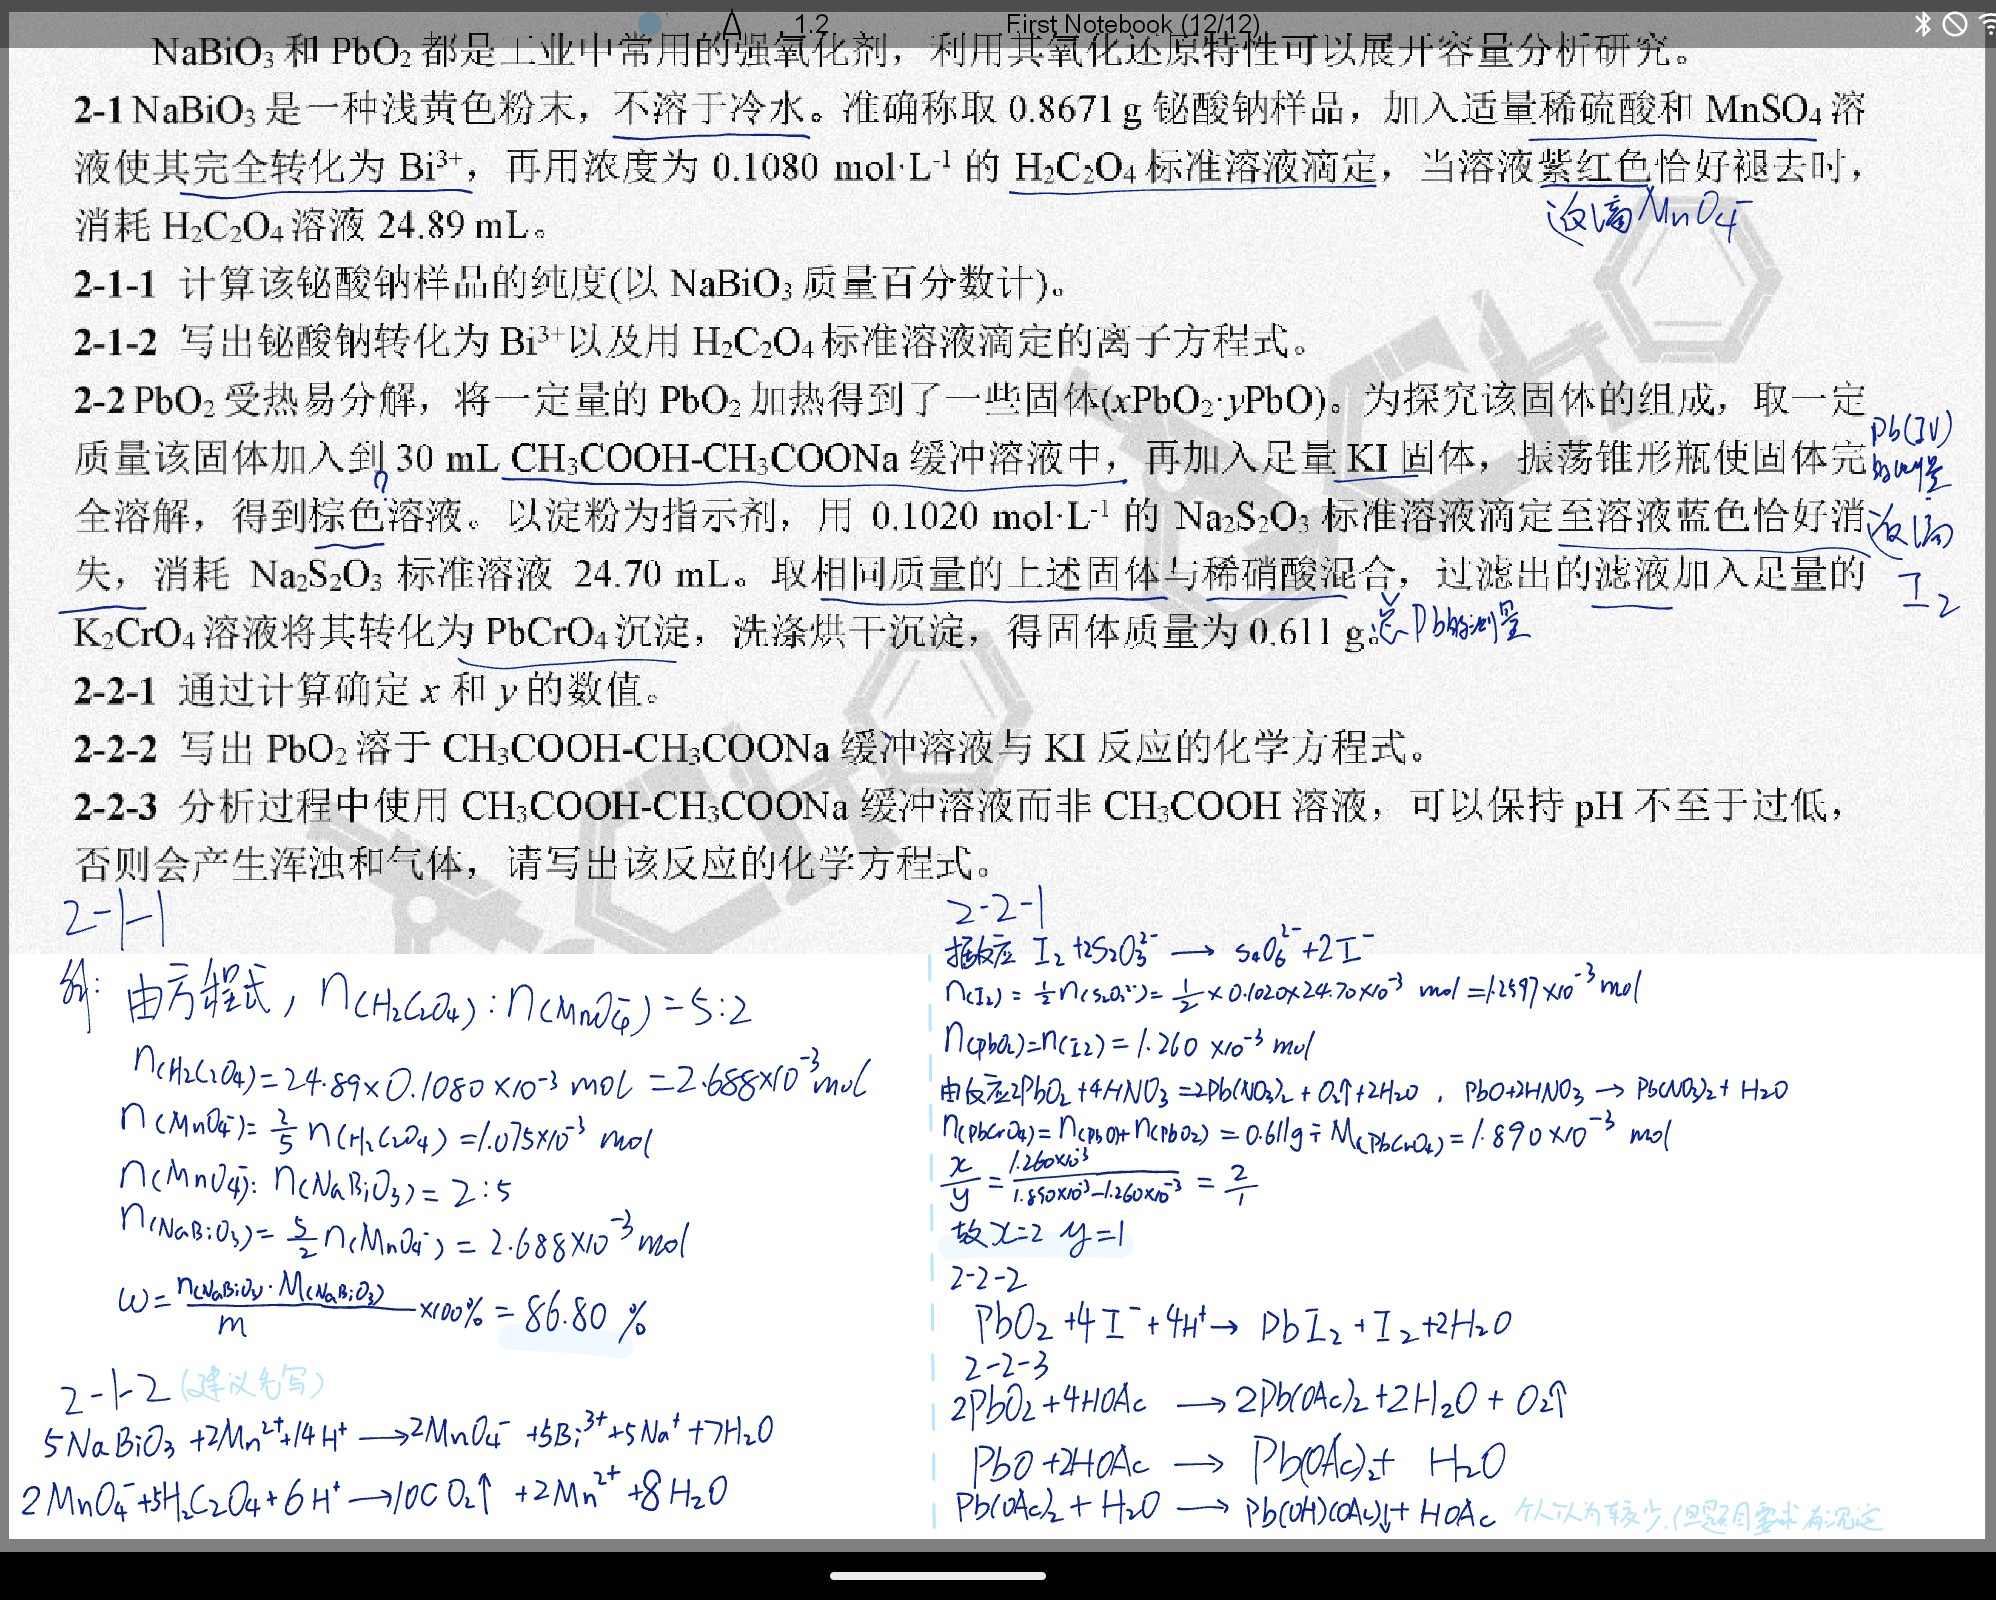 1.2 First Notebook (12/12)
NaBiO₃ 和 PbO₂ 都是工业中常用的强氧化剂，利用其氧化还原特性可以展开容量分析研究。
2-1 NaBiO₃ 是一种浅黄色粉末，不溶于冷水。准确称取 0.8671 g 铋酸钠样品，加入适量稀硫酸和 MnSO₄ 溶
液使其完全转化为 Bi³⁺，再用浓度为 0.1080 mol·L⁻¹ 的 H₂C₂O₄ 标准溶液滴定，当溶液紫红色恰好褪去时，
消耗 H₂C₂O₄ 溶液 24.89 mL。
返滴 MnO₄⁻
2-1-1 计算该铋酸钠样品的纯度(以 NaBiO₃ 质量百分数计)。
2-1-2 写出铋酸钠转化为 Bi³⁺以及用 H₂C₂O₄ 标准溶液滴定的离子方程式。
2-2 PbO₂ 受热易分解，将一定量的 PbO₂ 加热得到了一些固体(xPbO₂·yPbO)。为探究该固体的组成，取一定
质量该固体加入到 30 mL CH₃COOH-CH₃COONa 缓冲溶液中，再加入足量 KI 固体，振荡锥形瓶使固体完
全溶解，得到棕色溶液。以淀粉为指示剂，用 0.1020 mol·L⁻¹ 的 Na₂S₂O₃ 标准溶液滴定至溶液蓝色恰好消
失，消耗 Na₂S₂O₃ 标准溶液 24.70 mL。取相同质量的上述固体与稀硝酸混合，过滤出的滤液加入足量的
K₂CrO₄ 溶液将其转化为 PbCrO₄ 沉淀，洗涤烘干沉淀，得固体质量为 0.611 g。
Pb(IV)
的测量
返滴
I₂
?
总Pb的测量
2-2-1 通过计算确定 x 和 y 的数值。
2-2-2 写出 PbO₂ 溶于 CH₃COOH-CH₃COONa 缓冲溶液与 KI 反应的化学方程式。
2-2-3 分析过程中使用 CH₃COOH-CH₃COONa 缓冲溶液而非 CH₃COOH 溶液，可以保持 pH 不至于过低，
否则会产生浑浊和气体，请写出该反应的化学方程式。
2-1-1
解: 由方程式, n(H₂C₂O₄):n(MnO₄⁻)=5:2
n(H₂C₂O₄)=24.89×0.1080×10⁻³ mol =2.688×10⁻³mol
n(MnO₄⁻)=2/5 n(H₂C₂O₄)=1.075×10⁻³ mol
n(MnO₄⁻):n(NaBiO₃)=2:5
n(NaBiO₃)=5/2 n(MnO₄⁻)=2.688×10⁻³mol
ω=n(NaBiO₃)·M(NaBiO₃)/m ×100%=86.80%
2-1-2 (建议先写)
5NaBiO₃+2Mn²⁺+14H⁺→2MnO₄⁻+5Bi³⁺+5Na⁺+7H₂O
2MnO₄⁻+5H₂C₂O₄+6H⁺→10CO₂↑+2Mn²⁺+8H₂O
2-2-1
据反应 I₂+2S₂O₃²⁻→S₄O₆²⁻+2I⁻
n(I₂)=1/2 n(S₂O₃²⁻)=1/2×0.1020×24.70×10⁻³ mol=1.2597×10⁻³mol
n(PbO₂)=n(I₂)=1.260×10⁻³mol
由反应2PbO₂+4HNO₃=2Pb(NO₃)₂+O₂↑+2H₂O, PbO+2HNO₃→Pb(NO₃)₂+H₂O
n(PbCrO₄)=n(PbO)+n(PbO₂)=0.611g÷M(PbCrO₄)=1.890×10⁻³ mol
x/y=1.260×10⁻³/1.890×10⁻³-1.260×10⁻³=2/1
故x=2 y=1
2-2-2
PbO₂+4I⁻+4H⁺→PbI₂+I₂+2H₂O
2-2-3
2PbO₂+4HOAc→2Pb(OAc)₂+2H₂O+O₂↑
PbO+2HOAc→Pb(OAc)₂+H₂O
Pb(OAc)₂+H₂O→Pb(OH)(OAc)↓+HOAc 个人认为较少,但题目要求有沉淀